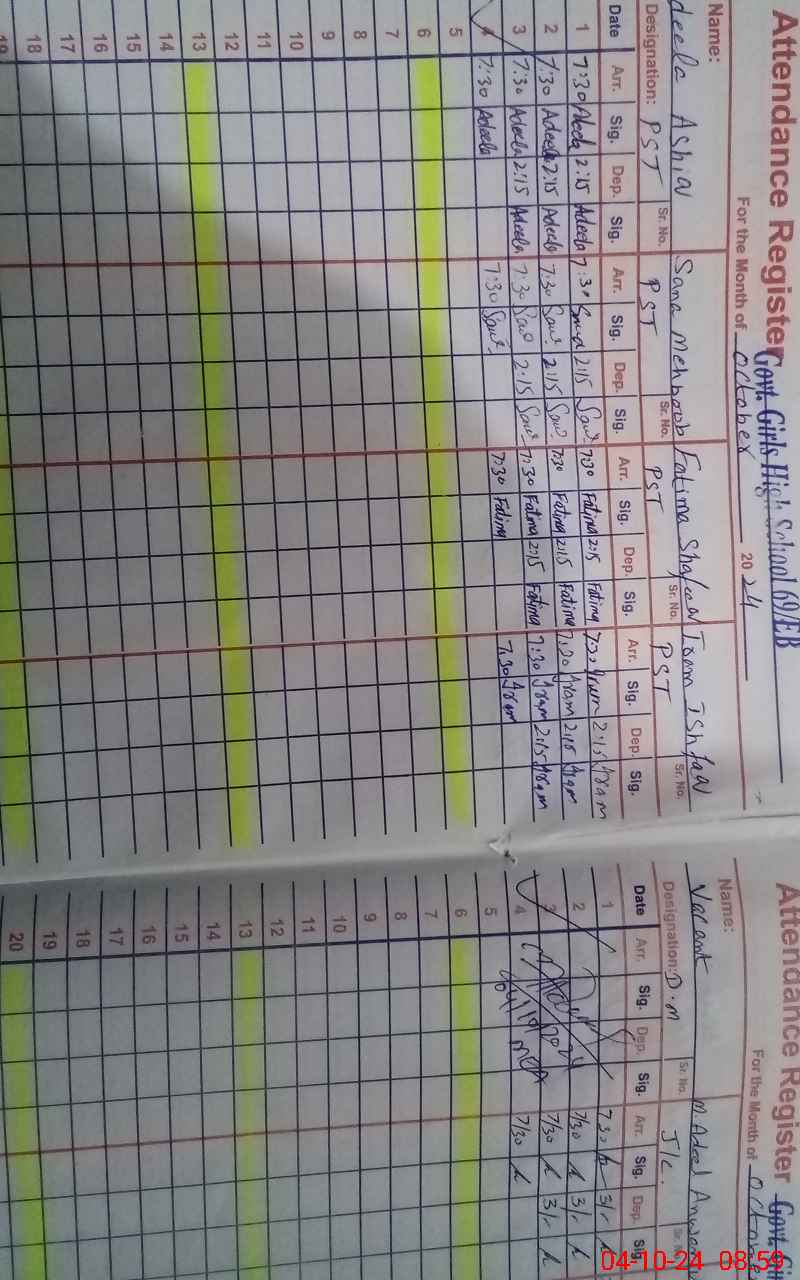 Attendance Register Govt. Girls High School 69/EB
For the Month of October 2024
Name: Adeela Ashiq Sana Mehboob Fatima Shafeeq Iram Ishfaq
Designation: PST Sr. No. PST Sr. No. PST Sr. No. PST Sr. No.
Date Arr. Sig. Dep. Sig. Arr. Sig. Dep. Sig. Arr. Sig. Dep. Sig. Arr. Sig. Dep. Sig.
1 7:30 Adeela 2:15 Adeela 7:30 Sana 2:15 7:30 Fatima 2:15 Fatima 7:30 Iram 2:15 Iram
2 7:30 Adeela 2:15 Adeela 7:30 2:15 7:30 Fatima 2:15 Fatima 7:30 Iram 2:15 Iram
3 7:30 Adeela 2:15 Adeela 7:30 2:15 7:30 Fatima 2:15 Fatima 7:30 Iram 2:15 Iram
4 7:30 Adeela 7:30 7:30 Fatima 7:30 Iram
5
6
7
8
9
10
11
12
13
14
15
16
17
18
19
Attendance Register Govt. Gir
For the Month of Octobe
Name: Vacant M. Adeel Anwar
Designation: D.M Sr. No. J/C. Sr. No.
Date Arr. Sig. Dep. Sig. Arr. Sig. Dep. Sig.
1 7:30 3/
2 7/30 3/
3 7/30 3/
4 7/30
5
6
7
8
9
10
11
12
13
14
15
16
17
18
19
20
04-10-24 08:59